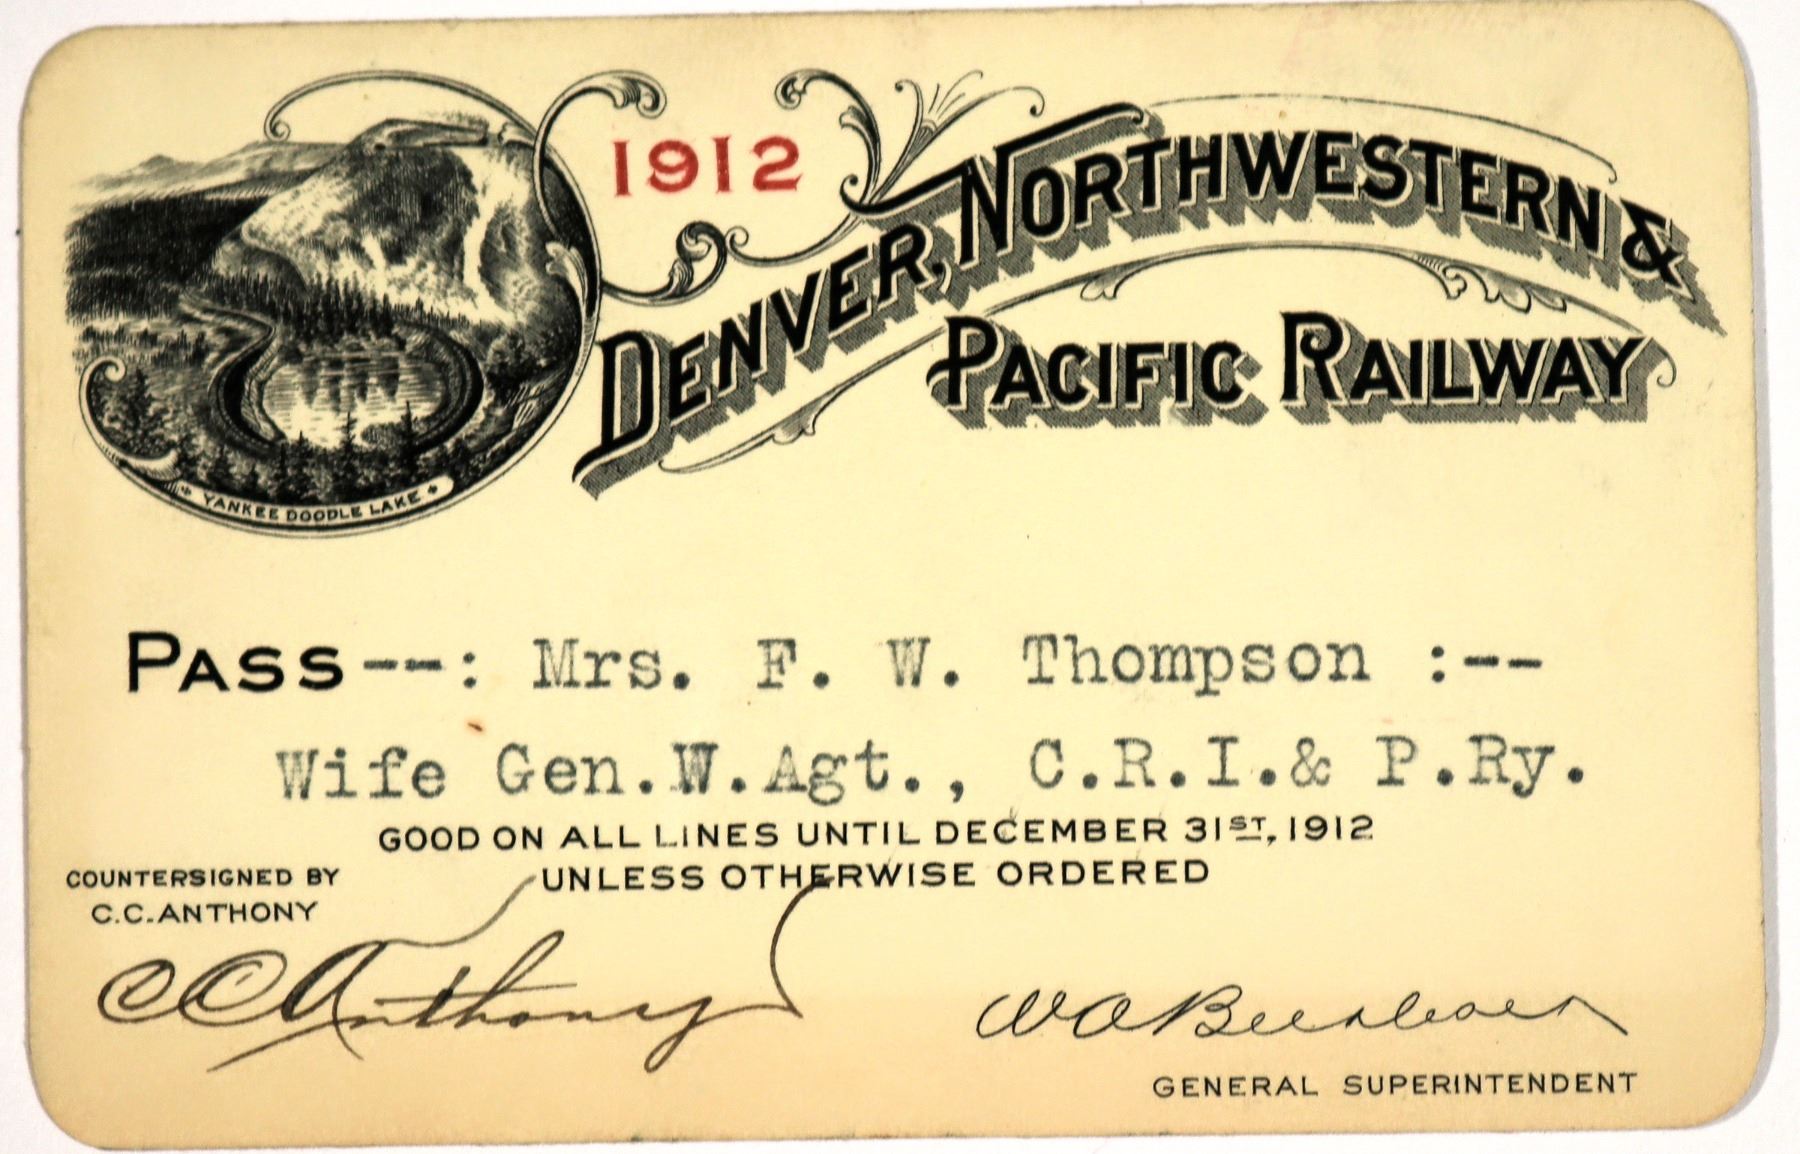 1912
DENVER, NORTHWESTERN &
PACIFIC RAILWAY
YANKEE DOODLE LAKE
PASS--: Mrs. F. W. Thompson :--
Wife Gen.W.Agt., C.R.I.& P.Ry.
GOOD ON ALL LINES UNTIL DECEMBER 31ST, 1912
UNLESS OTHERWISE ORDERED
COUNTERSIGNED BY
C.C.ANTHONY
CCAnthony
GENERAL SUPERINTENDENT